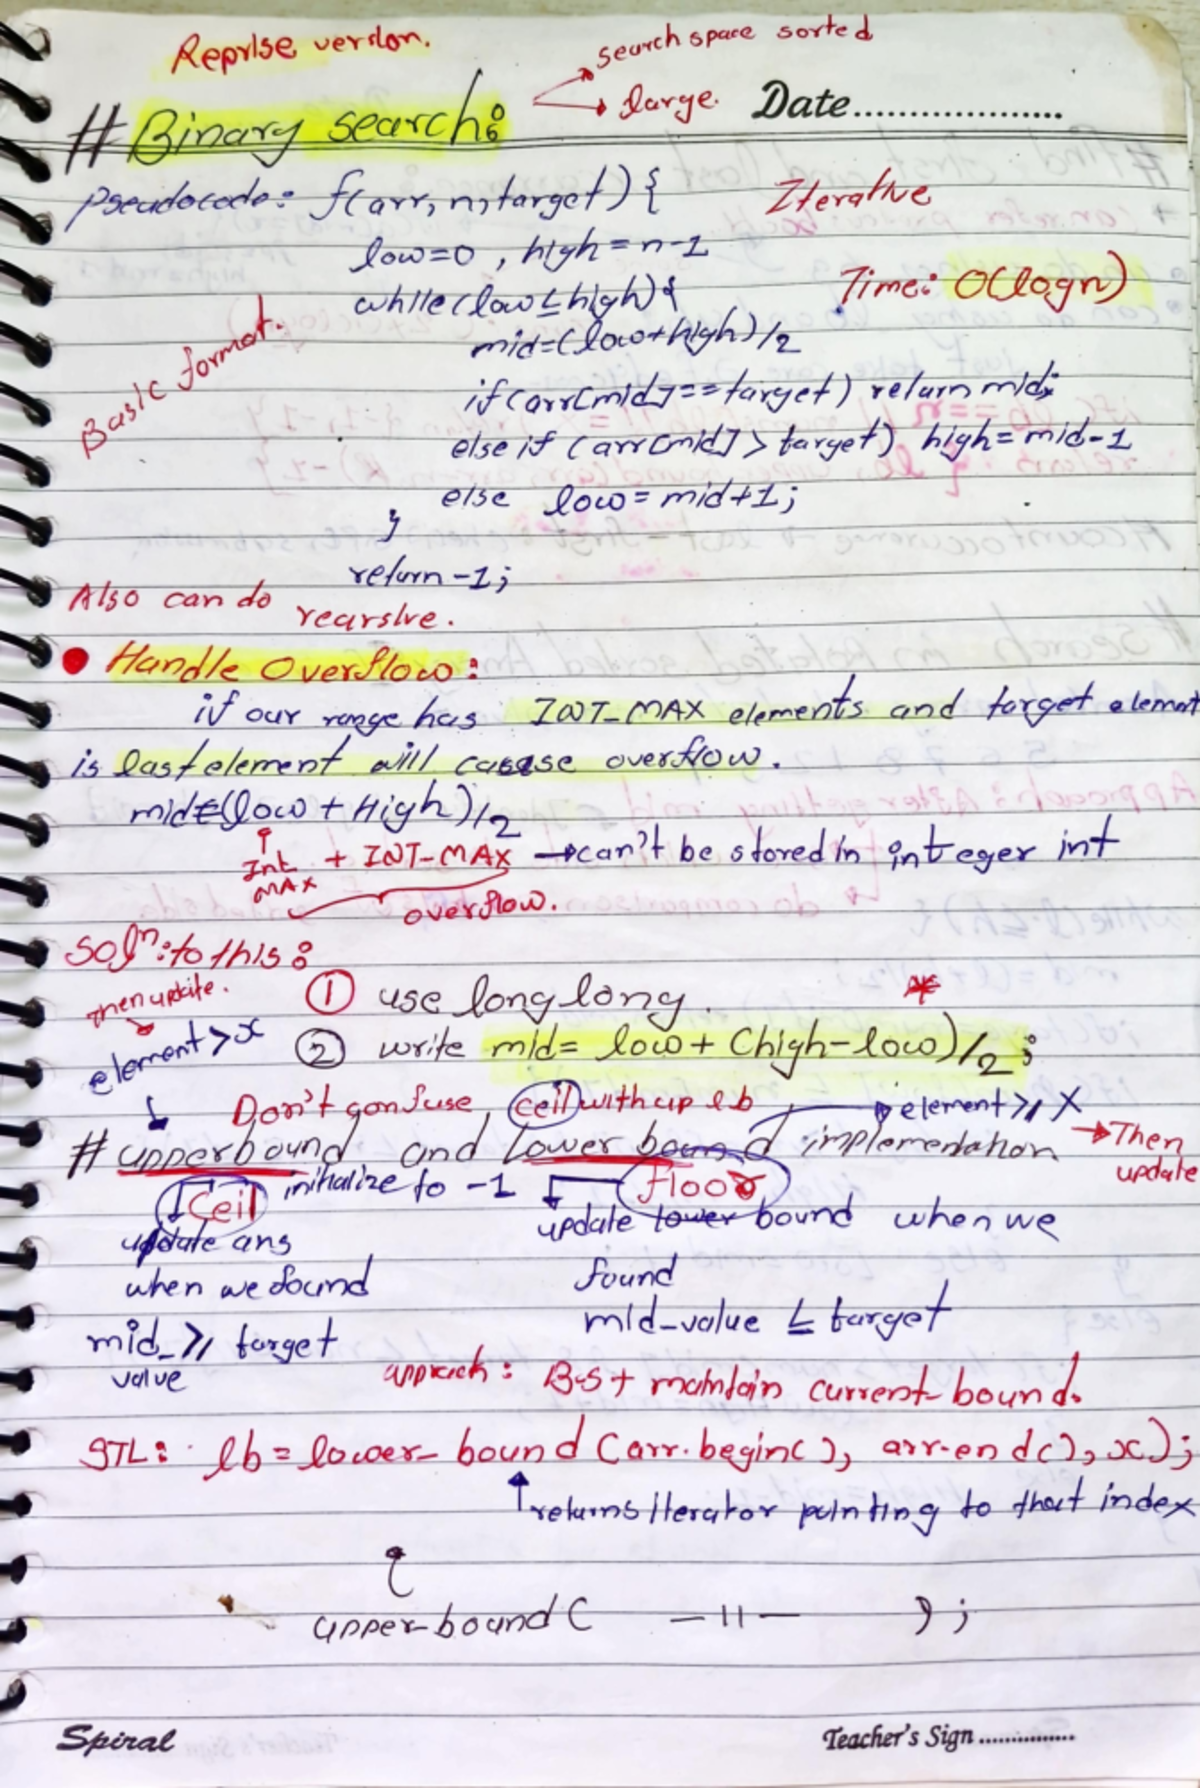 Reprise version.
search space sorted
large.
Date....................
# Binary search:
Pseudocode: f(arr, n, target) {
Iterative
low=0 , high = n-1
while (low ≤ high) {
Time: O(logn)
mid=(low+high)/2
Basic format.
if (arr[mid]==target) return mid;
else if (arr[mid] > target) high = mid-1
else low = mid+1;
}
return -1;
Also can do recursive.
• Handle Overflow:
if our range has INT_MAX elements and target element
is last element will cause overflow.
mid=(low + High)/2
Int MAX + INT-MAX → can't be stored in integer int
overflow.
Solⁿ: to this:
Then update.
① use long long.
element > x
② write mid= low+ (high-low)/2 ;
Don't confuse, ceil with up lb
element ≥ x
# upperbound and lower bound implementation
→ Then update
Ceil
initialize to -1
floor
update ans
update lower bound when we
when we found
found
mid_value ≤ target
mid_value ≥ target
approach: B-S + maintain current-bound.
STL: lb = lower_bound (arr.begin(), arr.end(), x);
returns iterator pointing to that index
upper-bound ( —11— ) ;
Spiral
Teacher's Sign ................